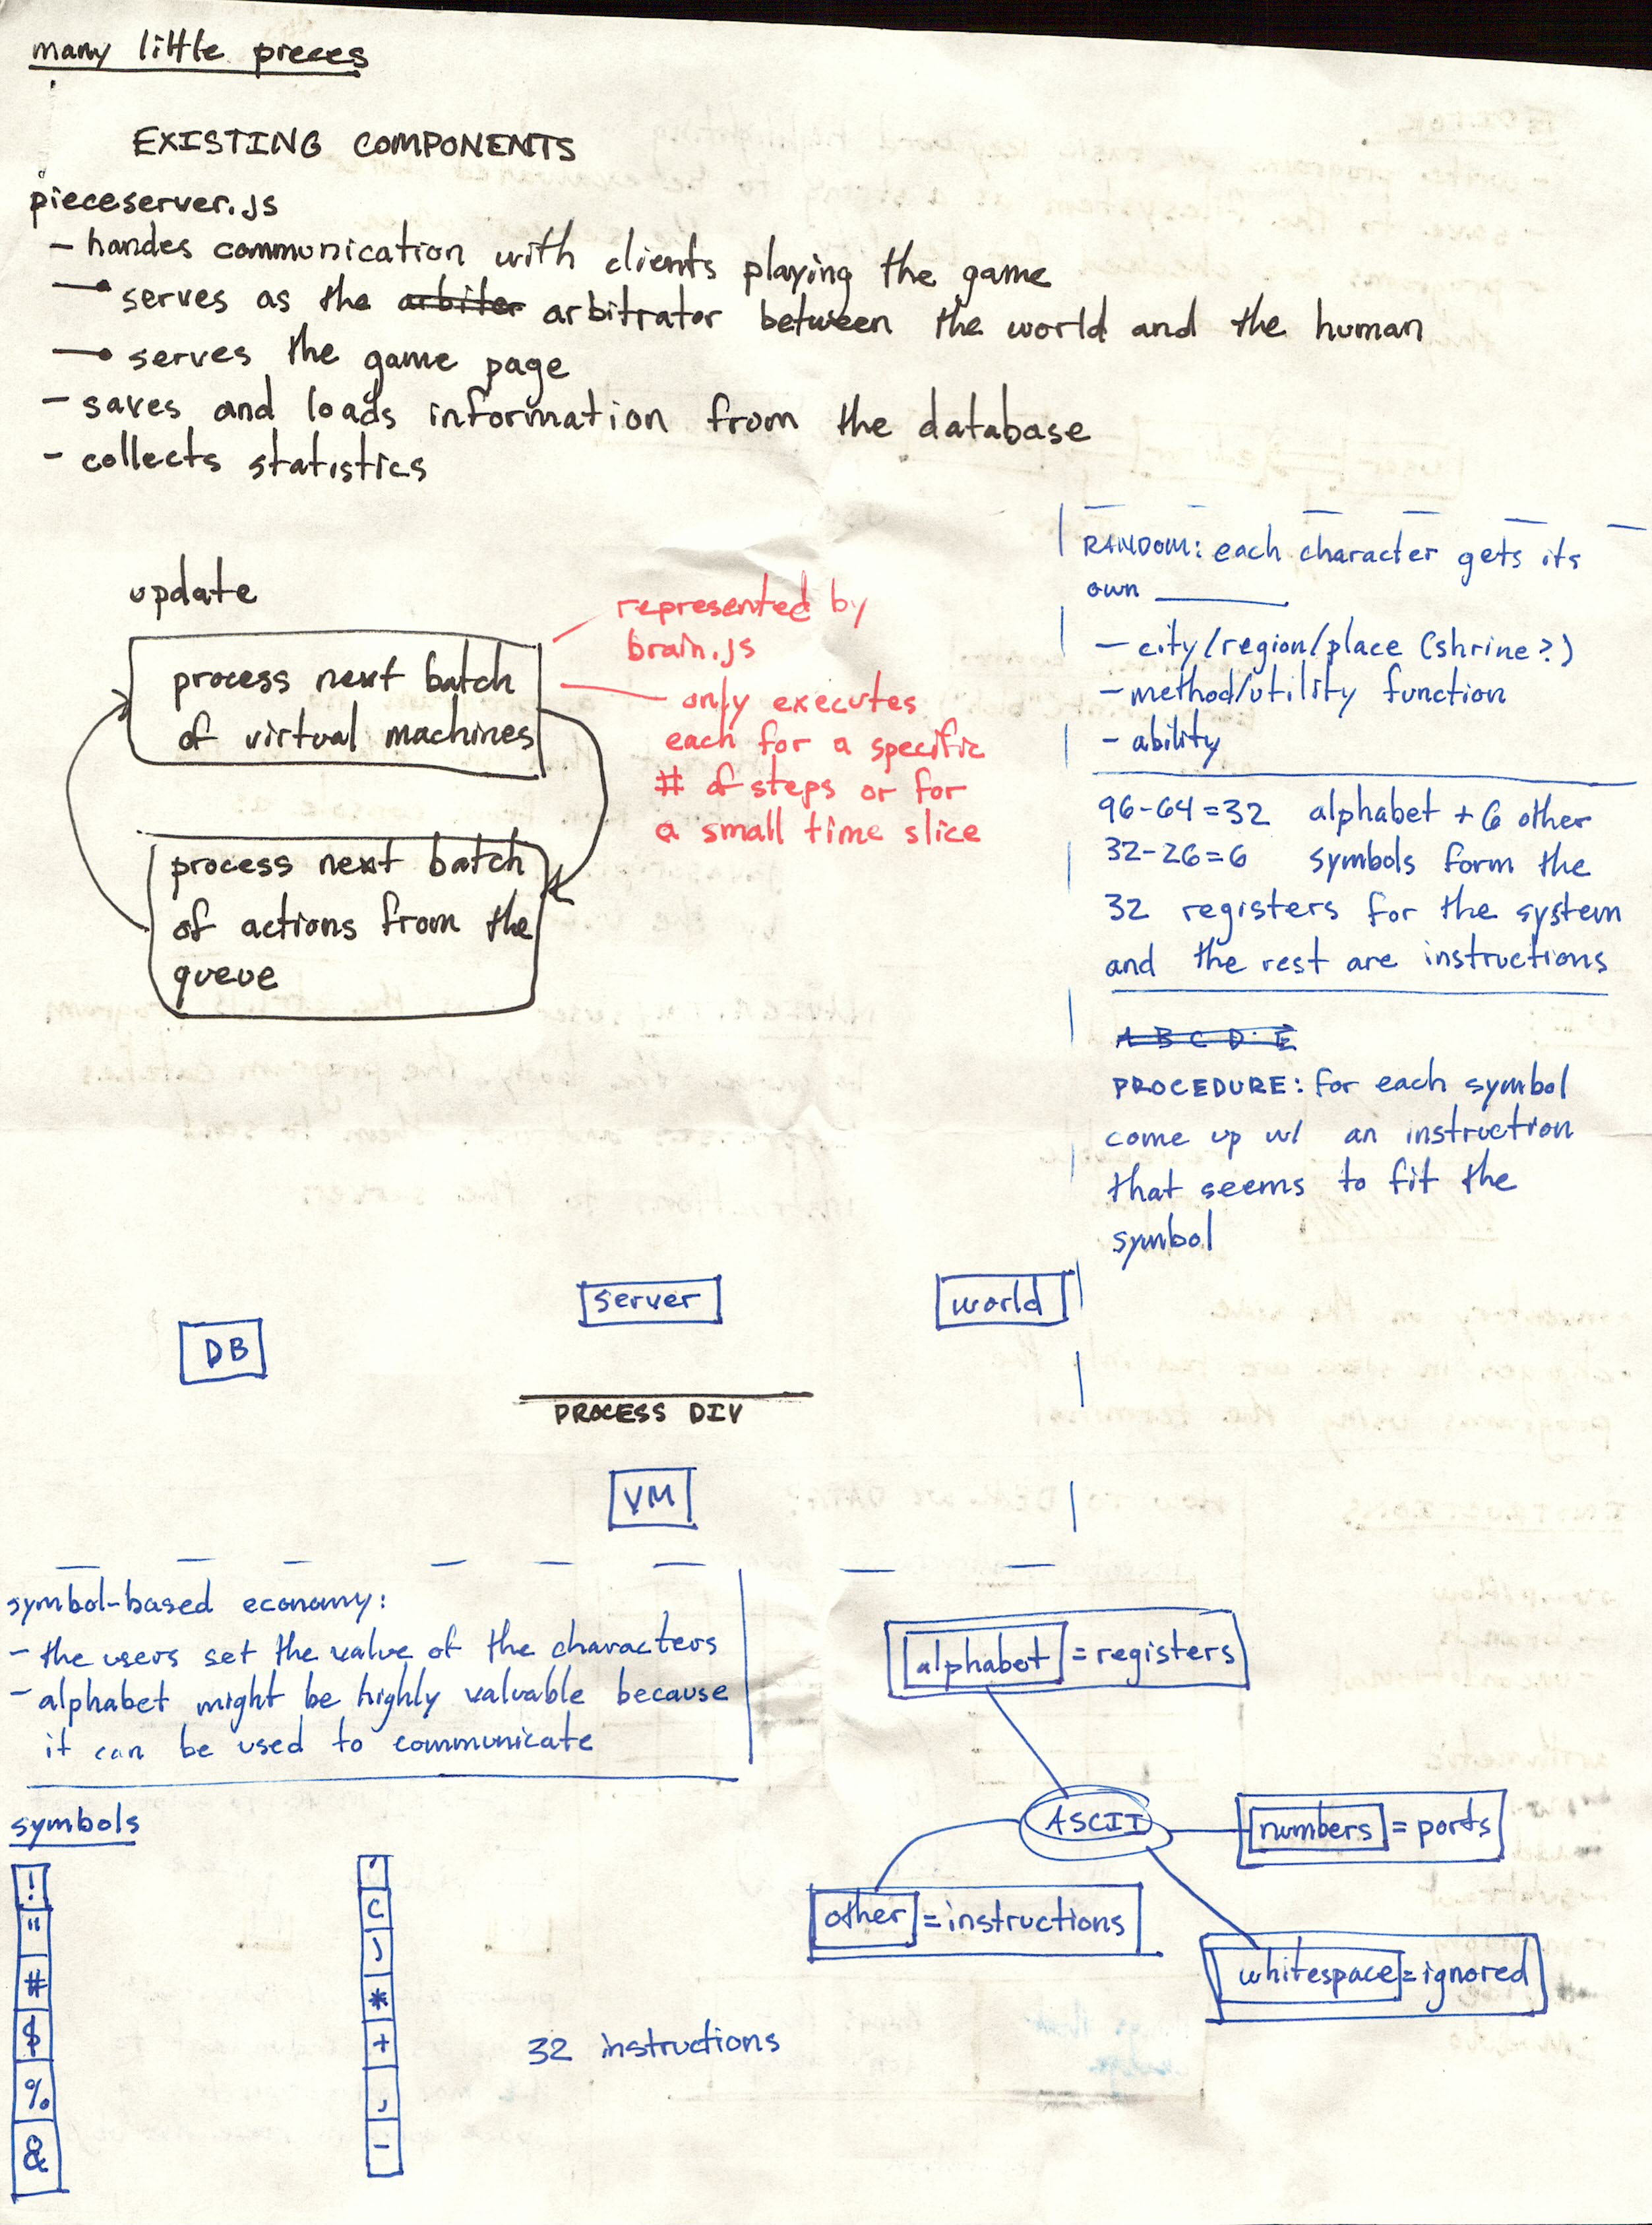 many little pieces
EXISTING COMPONENTS
pieceserver.js
- handes communication with clients playing the game
- serves as the arbiter arbitrator between the world and the human
- serves the game page
- saves and loads information from the database
- collects statistics
update
process next batch
of virtual machines
process next batch
of actions from the
queue
represented by
brain.js
- only executes
each for a specific
# of steps or for
a small time slice
RANDOM: each character gets its
own ______
- city/region/place (shrine?)
- method/utility function
- ability
96-64=32 alphabet + 6 other
32-26=6 symbols form the
32 registers for the system
and the rest are instructions
A B C D E
PROCEDURE: for each symbol
come up w/ an instruction
that seems to fit the
symbol
server
world
DB
PROCESS DIV
VM
symbol-based economy:
- the users set the value of the characters
- alphabet might be highly valuable because
it can be used to communicate
alphabet = registers
ASCII
numbers = ports
other = instructions
whitespace = ignored
symbols
!
"
#
$
%
&
'
(
)
*
+
,
-
32 instructions